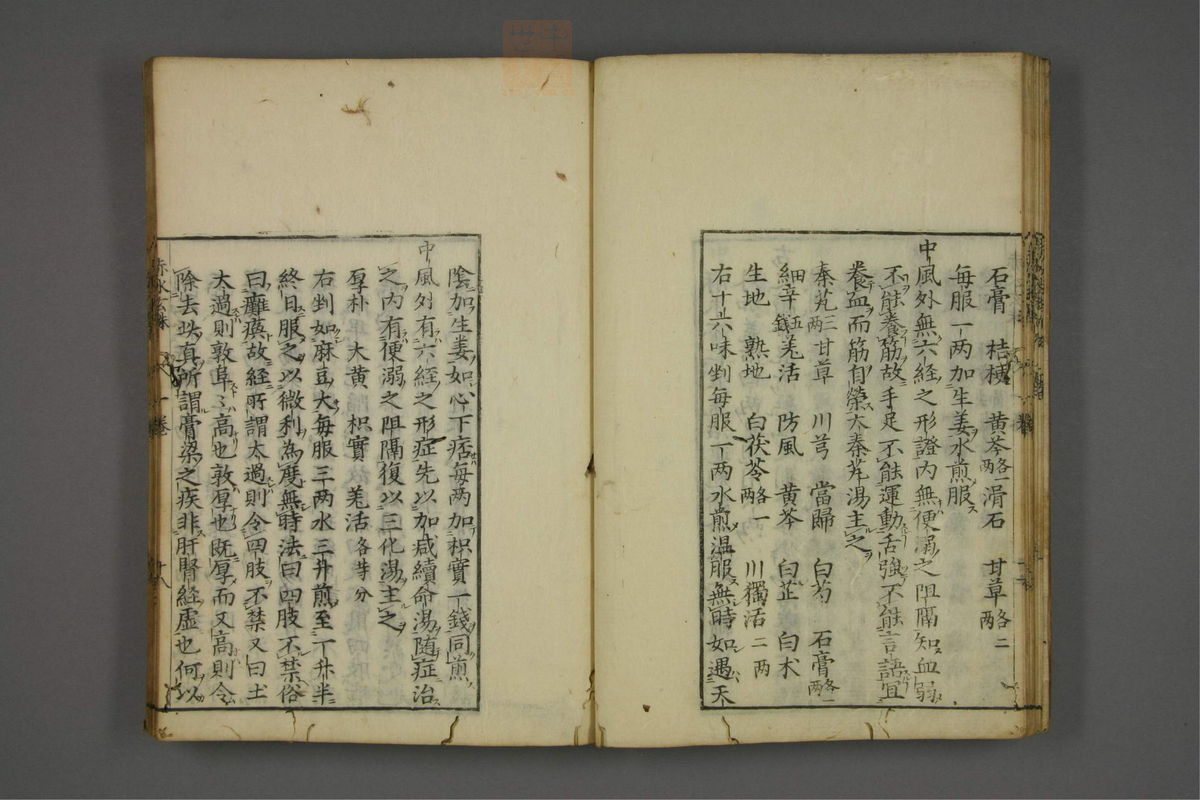 石膏　桔梗　黄芩各一两滑石　甘草各二两
每服一两加生姜水煎服
中風外無六經之形證内無便溺之阻隔知血弱
不能養筋故手足不能運動舌強不能言語宜
養血而筋自榮大秦艽湯主之
秦艽三两甘草　川芎　當歸　白芍　石膏各一两
細辛五錢羌活　防風　黄芩　白芷　白术
生地　熟地　白茯苓各一两　川獨活二两
右十六味剉每服一两水煎温服無時如遇天
陰加生姜如心下痞每两加枳實一錢同煎
中風外有六經之形症先以加减續命湯随症治
之内有便溺之阻隔復以三化湯主之
厚朴　大黄　枳實　羌活各等分
右剉如麻豆大每服三两水三升煎至一升半
終日服之以微利為度無時法曰四肢不禁俗
曰癱瘓故經所謂太過則令四肢不禁又曰土
太過則敦阜〻高也敦厚也既厚而又高則令
除去此真所謂膏粱之疾非肝腎經虚也何以
一卷
十八